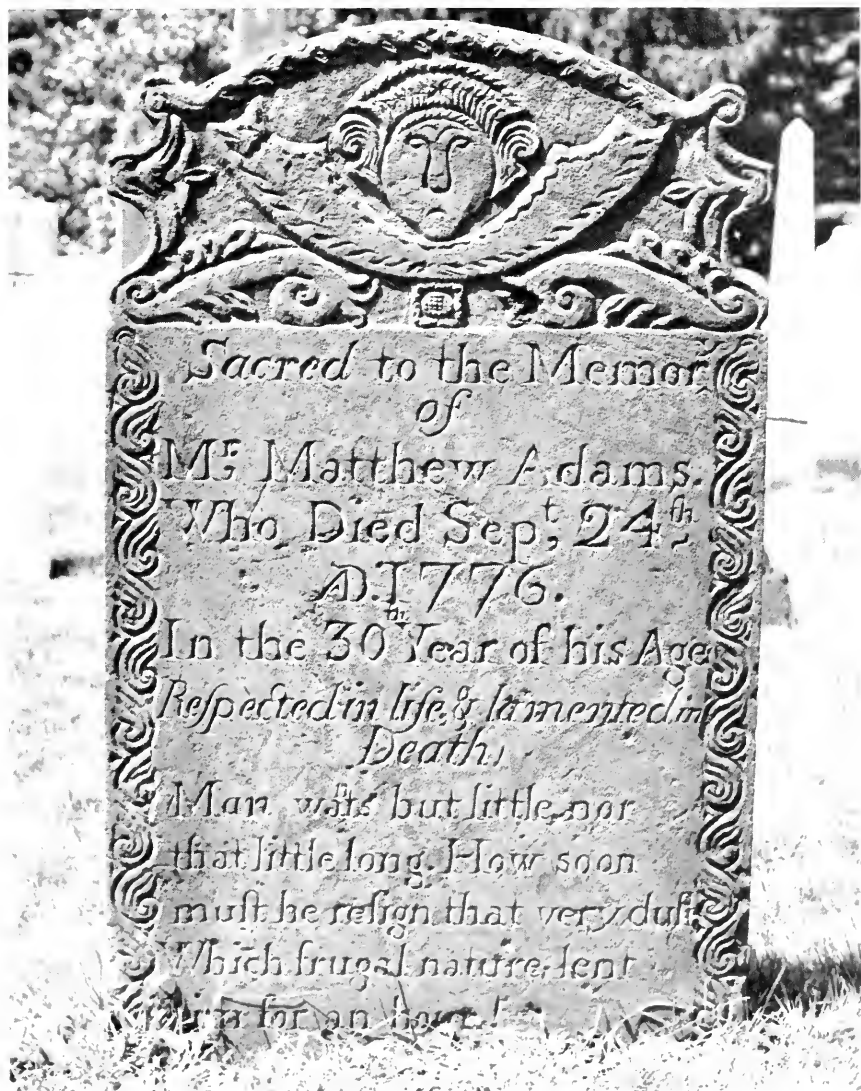 Sacred to the Memory
of
Mr. Matthew Adams.
Who Died Sept. 24th
AD. 1776.
In the 30th Year of his Age
Reſpected in life, & lamented in
Death,
Man wants but little, nor
that little long. How soon
muſt he reſign that very duſt
Which frugal nature, lent
him for an hour!